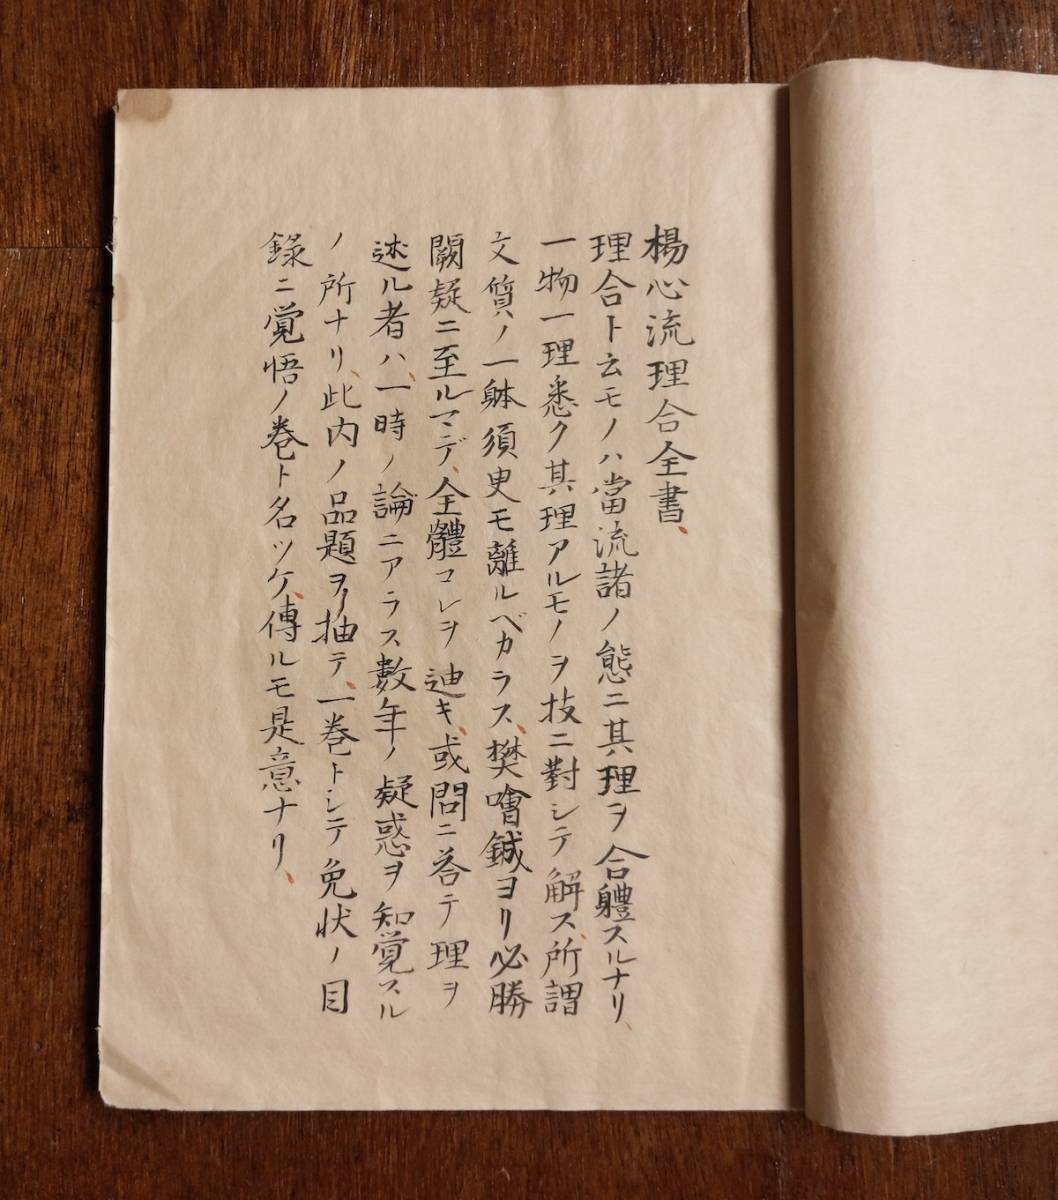 楊心流理合全書、
理合ト云モノハ當流諸ノ態ニ其理ヲ合體スルナリ、
一物一理悉ク其理アルモノヲ技ニ對シテ解ス、所謂
文質ノ一躰須臾モ離ルベカラス、樊噲鍼ヨリ必勝
闕疑ニ至ルマデ、全體コレヲ迪キ、或問ニ答テ理ヲ
述ル者ハ、一時ノ論ニアラス數年ノ疑惑ヲ知覚スル
ノ所ナリ、此内ノ品題ヲ抽テ、一巻トシテ免状ノ目
錄ニ覚悟ノ巻ト名ツケ、傳ルモ是意ナリ、